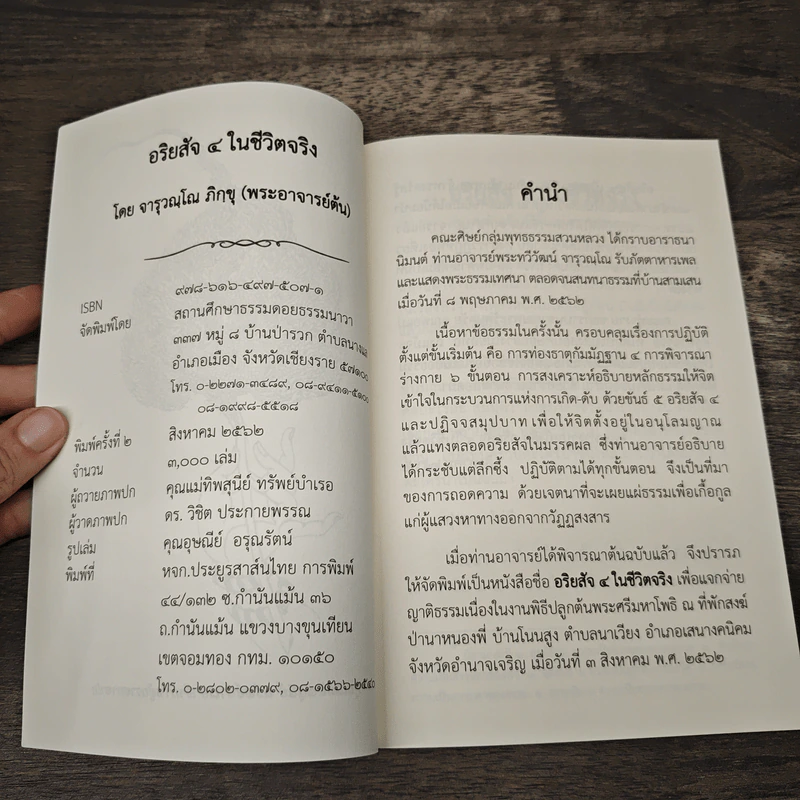 อริยสัจ ๔ ในชีวิตจริง
โดย จารุวณฺโณ ภิกขุ (พระอาจารย์ต้น)
ISBN ๙๗๘-๖๑๖-๔๙๗-๕๐๗-๑
จัดพิมพ์โดย สถานศึกษาธรรมดอยธรรมนาวา
๓๓๗ หมู่ ๘ บ้านป่ารวก ตำบลนางแล
อำเภอเมือง จังหวัดเชียงราย ๕๗๑๐๐
โทร. ๐-๒๒๗๑-๓๔๘๙, ๐๘-๙๔๑๑-๕๑๐๐
๐๘-๑๙๙๘-๕๕๑๘
พิมพ์ครั้งที่ ๒ สิงหาคม ๒๕๖๒
จำนวน ๓,๐๐๐ เล่ม
ผู้ถวายภาพปก คุณแม่ทิพสุนีย์ ทรัพย์บำเรอ
ผู้วาดภาพปก ดร. วิชิต ประกายพรรณ
รูปเล่ม คุณอุษณีย์ อรุณรัตน์
พิมพ์ที่ หจก.ประยูรสาส์นไทย การพิมพ์
๔๔/๑๓๒ ซ.กำนันแม้น ๓๖
ถ.กำนันแม้น แขวงบางขุนเทียน
เขตจอมทอง กทม. ๑๐๑๕๐
โทร. ๐-๒๘๐๒-๐๓๗๙, ๐๘-๑๕๖๖-๒๕๔๐
คำนำ
คณะศิษย์กลุ่มพุทธธรรมสวนหลวง ได้กราบอาราธนา
นิมนต์ ท่านอาจารย์พระทวีวัฒน์ จารุวณฺโณ รับภัตตาหารเพล
และแสดงพระธรรมเทศนา ตลอดจนสนทนาธรรมที่บ้านสามเสน
เมื่อวันที่ ๘ พฤษภาคม พ.ศ. ๒๕๖๒
เนื้อหาข้อธรรมในครั้งนั้น ครอบคลุมเรื่องการปฏิบัติ
ตั้งแต่ขั้นเริ่มต้น คือ การท่องธาตุกัมมัฏฐาน ๔ การพิจารณา
ร่างกาย ๖ ขั้นตอน การสงเคราะห์อธิบายหลักธรรมให้จิต
เข้าใจในกระบวนการแห่งการเกิด-ดับ ด้วยขันธ์ ๕ อริยสัจ ๔
และปฏิจจสมุปบาท เพื่อให้จิตตั้งอยู่ในอนุโลมญาณ
แล้วแทงตลอดอริยสัจในมรรคผล ซึ่งท่านอาจารย์อธิบาย
ได้กระชับแต่ลึกซึ้ง ปฏิบัติตามได้ทุกขั้นตอน จึงเป็นที่มา
ของการถอดความ ด้วยเจตนาที่จะเผยแผ่ธรรมเพื่อเกื้อกูล
แก่ผู้แสวงหาทางออกจากวัฏฏสงสาร
เมื่อท่านอาจารย์ได้พิจารณาต้นฉบับแล้ว จึงปรารภ
ให้จัดพิมพ์เป็นหนังสือชื่อ อริยสัจ ๔ ในชีวิตจริง เพื่อแจกจ่าย
ญาติธรรมเนื่องในงานพิธีปลูกต้นพระศรีมหาโพธิ ณ ที่พักสงฆ์
ป่านาหนองพี่ บ้านโนนสูง ตำบลนาเวียง อำเภอเสนางคนิคม
จังหวัดอำนาจเจริญ เมื่อวันที่ ๓ สิงหาคม พ.ศ. ๒๕๖๒